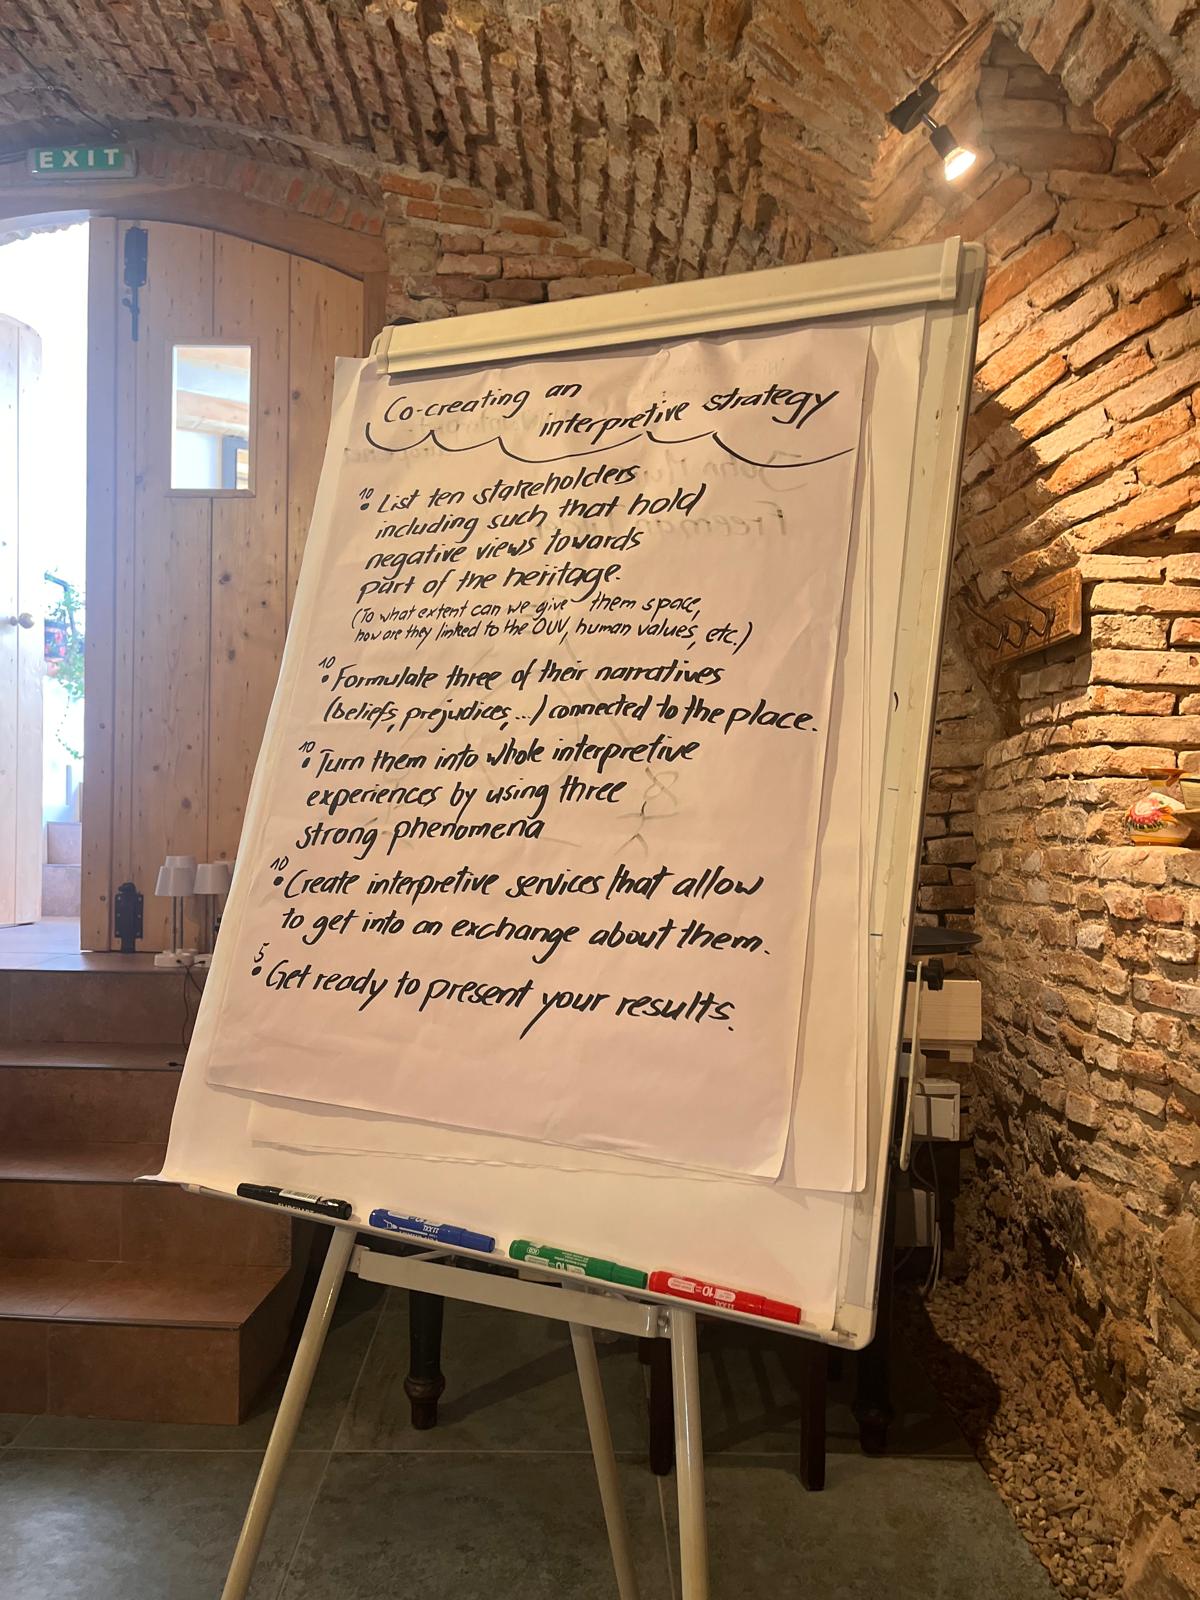 EXIT
Co-creating an
interpretive strategy
10
• List ten stakeholders
including such that hold
negative views towards
part of the heritage.
(To what extent can we give them space,
how are they linked to the OUV, human values, etc.)
10
• Formulate three of their narratives
(beliefs, prejudices, ...) connected to the place.
10
• Turn them into whole interpretive
experiences by using three
strong phenomena
10
• Create interpretive services that allow
to get into an exchange about them.
5
• Get ready to present your results.